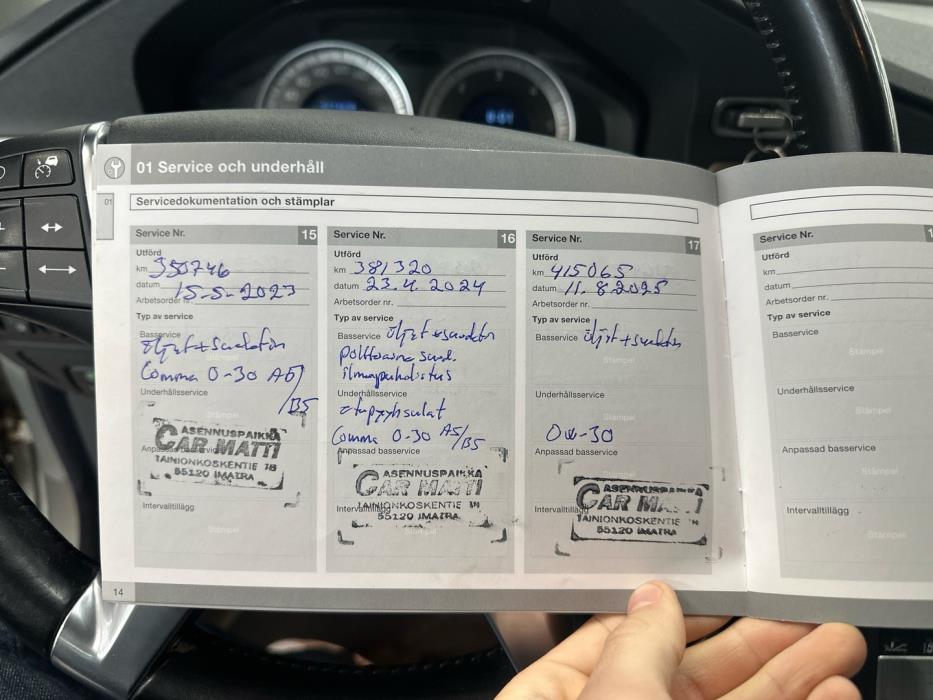 01 Service och underhåll
01
Servicedokumentation och stämplar
Service Nr. 15
Utförd
km 350746
datum 15-5-2023
Arbetsorder nr.
Typ av service
Basservice
öljyt+suodatin
Comma 0-30 A5/
/B5
Underhållsservice
Stämpel
Anpassad basservice
ASENNUSPAIKKA
CAR MATTI
TAINIONKOSKENTIE 18
55120 IMATRA
Intervalltillägg
Stämpel
14
Service Nr. 16
Utförd
km 381320
datum 23.4.2024
Arbetsorder nr.
Typ av service
Basservice öljyt+suodatin
polttoaine suod.
ilmanpuhdistus
Underhållsservice
etupyyh.sulat
Comma 0-30 A5/B5
Anpassad basservice
ASENNUSPAIKKA
CAR MATTI
TAINIONKOSKENTIE
55120 IMATRA
Intervalltillägg
Stämpel
Service Nr. 17
Utförd
km 415065
datum 11.8.2025
Arbetsorder nr.
Typ av service
Basservice öljyt+suodatin
Stämpel
Underhållsservice
Stämpel
0w-30
Anpassad basservice
ASENNUSPAIKKA
CAR MATTI
TAINIONKOSKENTIE
55120 IMATRA
Intervalltillägg
Service Nr.
Utförd
km
datum
Arbetsorder nr.
Typ av service
Basservice
Stämpel
Underhållsservice
Stämpel
Anpassad basservice
Stämpel
Intervalltillägg
Stämpel